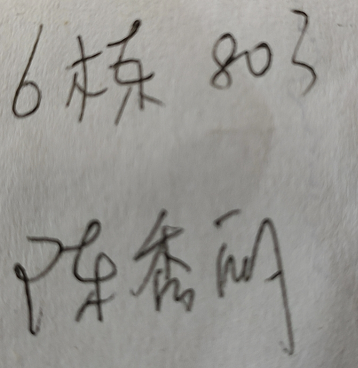 6栋 803
陈香丽